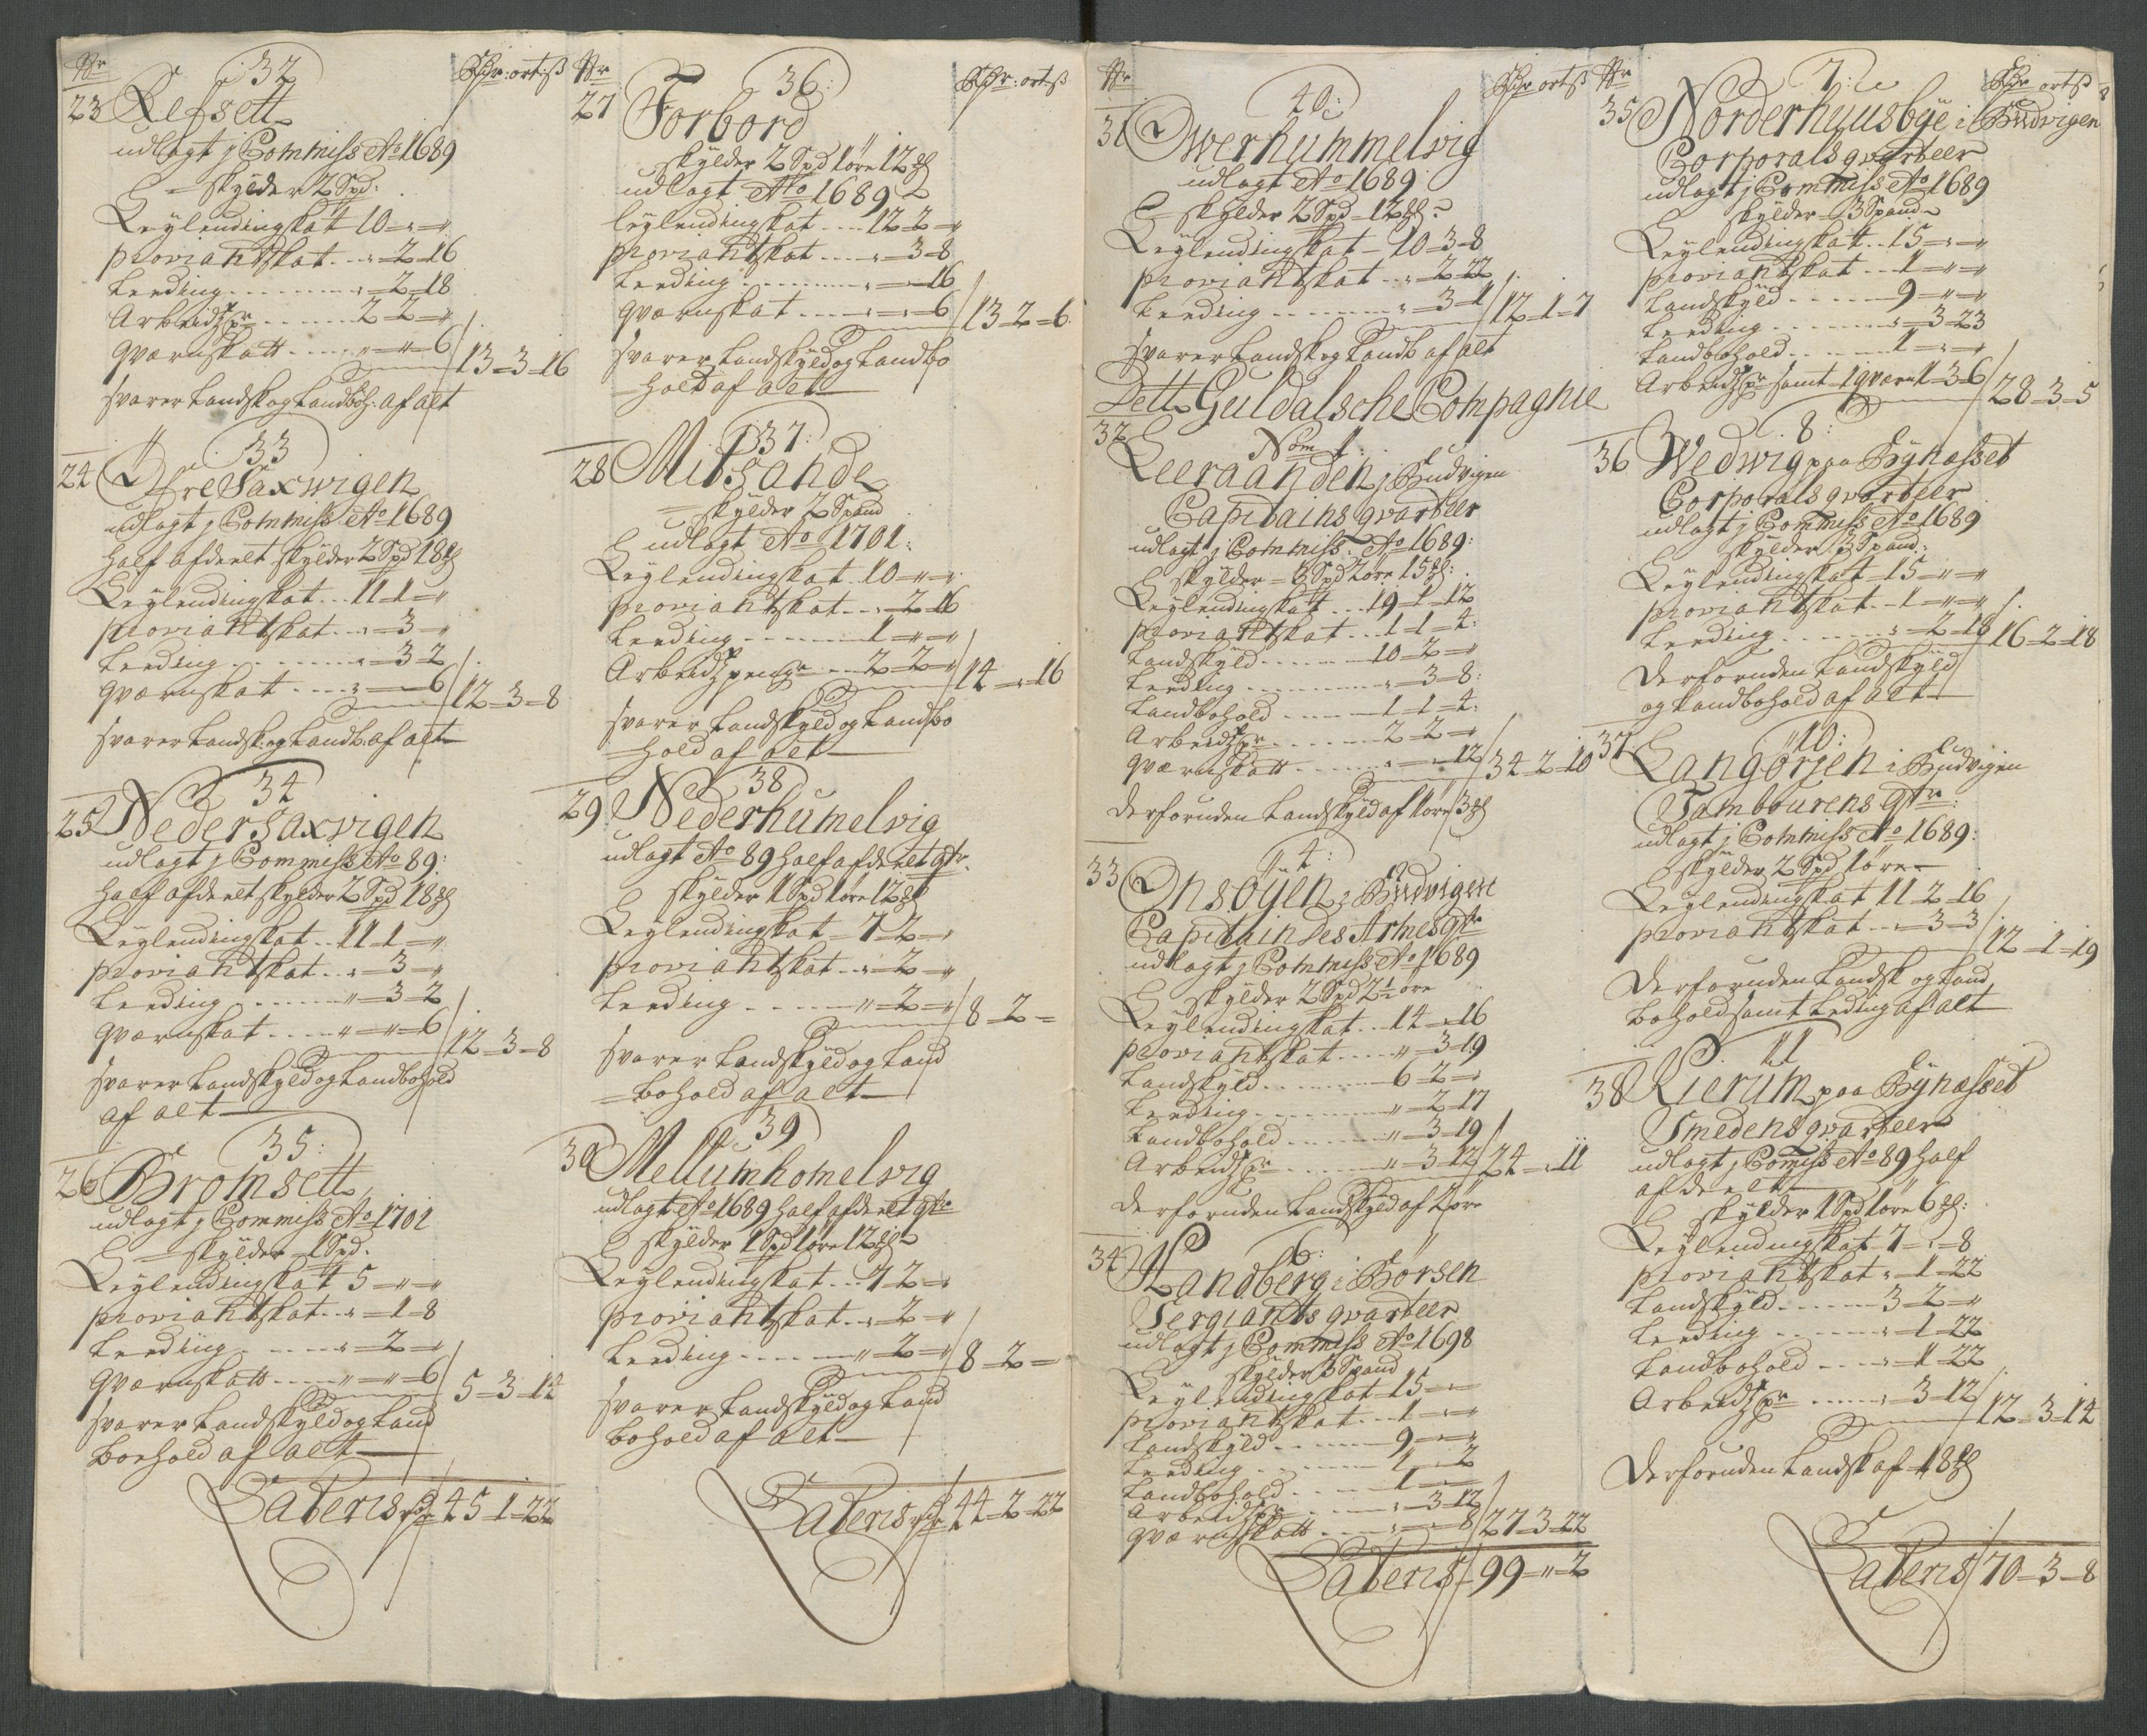 Nr
32
Rdr: ort: ß
23 Refsett
udlagt j Commiss Ao 1689
skylder 2 Spd:
Leylendingskat 10 = „ = „
proviantskat . . „ = 2 = 16
Leeding . . . . . „ = 2 = 18
Arbeidtzpr . . . . 2 = 2 = „
qværnskatt . . . „ = „ = 6 / 13 = 3 = 16
svarer Landsk og Landboh: af alt
33
24 Øfre Saxwigen
udlagt j Commiss Ao 1689
half afdeelt skylder 2 Spd 18 ml
Leylendingskat . . 11 = 1 = „
proviantskat . . „ = 3 = „
Leeding . . . . . „ = 3 = 2
qværnskat . . . . „ = „ = 6 / 12 = 3 = 8
svarer Landsk: og Landb: af alt
34
25 Neder Saxvigen
udlagt j Commiss Ao 89:
half afdeelt skylder 2 Spd 18 ml
Leylendingskat . . 11 = 1 = „
proviantskat . . „ = 3 = „
Leeding . . . . . „ = 3 = 2
qværnskat . . . . „ = „ = 6 / 12 = 3 = 8
svarer Landskyld og Landbohold
af alt
35:
26 Bromsett
udlagt j Commiss Ao 1701
skylder 1 Spd.
Leylendingskat 5 = „ = „
proviantskat . . „ = 1 = 8
Leeding . . . . . „ = 2 = „
qværnskatt . . . „ = „ = 6 / 5 = 3 = 12
svarer Landskyld og Land
boehold af alt
Lateris rdr 45 = 1 = 22
Nr
36:
Rdr: ort: ß
27 Forbord
skylder 2 Spd 1 øre 12 ml
udlagt Ao 1689
leylendingskat . . . 12 = 2 = „
proviantskat . . . . „ = 3 = 8
Leeding . . . . . . „ = „ = 16
qværnskat . . . . „ = „ = 6 / 13 = 2 = 6
svarer Landskyld og Landbo
hold af alt
37:
28 Mitsande
skylder 2 Spand
udlagt Ao 1701:
Leylendingskat . 10 = „ = „
proviantskat . . „ = 2 = 16
Leeding . . . . . 1 = „ = „
Arbeidtz penge . . . 2 = 2 = „ / 14 = „ = 16
svarer Landskyld og Landbo
hold af alt
38
29 Nederhumelvig
udlagt Ao 89 half afdeelt qtr.
skylder 1 Spd 1 øre 12 ml
Leylendingskat = 7 = 2 = „
proviantskat . . „ = 2 = „
Leeding . . . . . „ = 2 = „ / 8 = 2 =
svarer Landskyld og Land
bohold af alt
39
30 Mellumhomelvig
udlagt Ao 1689 half afdeelt qtr
skylder 1 Spd 1 øre 12 ml
Leylendingskat . . . 7 = 2 = „
proviantskat . . „ = 2 = „
Leeding . . . . . „ = 2 = „ / 8 = 2 =
svarer Landskyld og Land
bohold af alt
Lateris rdr 44 = 2 = 22
Nr
40:
Rdr ort ß
31 Owerhummelvig
udlagt Ao 1689
skylder 2 Spd 12 ml
Leylendingskat = 10 = 3 = 8
proviantskat . . „ = 2 = 22
Leeding . . . . . „ = 3 = 1 / 12 = 1 = 7
svarer Landsk og Landb af alt
Dett Guldalsche Compagnie
Nom 1:
32 Leeraanden j Budvigen
Capitains qvarteer
udlagt j Commiss: Ao 1689:
skylder = 3 Spd 2 øre 15 ml:
Leylendingskatt . . . 19 = 1 = 12
proviantskat . . . 1 = 1 = 4:
Landskyld . . . . . . 10 = 2 = „
Leeding . . . . . . . „ = 3 = 8:
Landbohold . . . . . 1 = 1 = 4:
Arbeidtzpr . . . . . 2 = 2 = „
qværnskatt . . . . . „ = „ = 12 / 34 = 2 = 10
derforuden Landskyld af 1 øre 3 ml
4:
33 Onsøyen j Budvigen
Capitain des Armes qtr
udlagt j Commiss Ao 1689
skylder 2 Spd 2½ øre
Leylendingskat . . 14 = „ = 16
proviantskat . . . . „ = 3 = 19
Landskyld . . . . . . 6 = 2 = „
Leeding . . . . . . . „ = 2 = 17
Landbohold . . . . . „ = 3 = 19
Arbeidtzpr . . . . . „ = 3 = 12 / 24 = „ = 11
derforuden Landskyld af 2 øre
6:
34 Handberg i Børsen
Sergiants qvarteer
udlagt j Commiss Ao 1698
skylder 3 Spand
Leylendingskat = 15 = „ = „
proviantskat . . . 1 = „ = „
Landskyld . . . . . . 9 = „ = „
Leeding . . . . . . . 1 = „ = 2
Landbohold . . . . 1 = „ = „
Arbeidtzpr . . . . . „ = 3 = 12
qværnskatt . . . . . „ = „ = 8 / 27 = 3 = 22
Lateris = 99 = „ = 2
Nr
7:
Rdr ort ß
35 Norderhuusbye i Budvigen
Corporals qvarteer
udlagt j Commiss Ao 1689
skylder 3 Spand
Leylendingskatt . . 15 = „ = „
proviantskat . . . 1 = „ = „
Landskyld . . . . . 9 = „ = „
Leeding . . . . . . „ = 3 = 23
Landbohold . . . . 1 = „ = „
Arbeidtzpr samt 1 qværn 1 = 3 = 6 / 28 = 3 = 5
8:
36 Wedwig paa Bynæsset
Corporals qvarteer
udlagt j Commiss Ao 1689
skylder 3 Spand:
Leylendingskat = 15 = „ = „
proviantskat . . 1 = „ = „
Leeding . . . . . . „ = 2 = 18 / 16 = 2 = 18
derforuden Landskyld
og Landbohold af alt
10:
37 Langørjen i Budvigen
Tambourens qtr:
udlagt j Commiss Ao 1689:
skylder 2 Spd 1 øre
Leylendingskat 11 = 2 = 16
proviantskat . . „ = 3 = 3 / 12 = 1 = 19
derforuden Landsk og Land
bohold samt Leding af alt
11
38 Kierum paa Bynæsset
Smedens qvarteer
udlagt j Comiss Ao 89 half
afdeelt
skylder 1 Spd 1 øre 6 ml:
Leylendingskat 7 = „ = 8
proviantskat . „ = 1 = 22
Landskyld . . . . . 3 = 2 = „
Leeding . . . . . . „ = 1 = 22
Landbohold . . . . „ = 1 = 22
Arbeidtzpr . . . . . „ = 3 = 12 / 12 = 3 = 14
derforuden Landsk af 18 ml
Lateris / 70 = 3 = 8